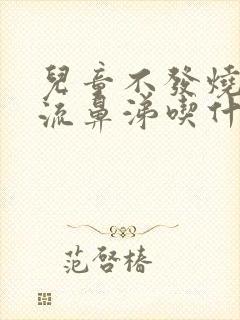 兒童不發燒
流鼻涕喫什
范啓椿